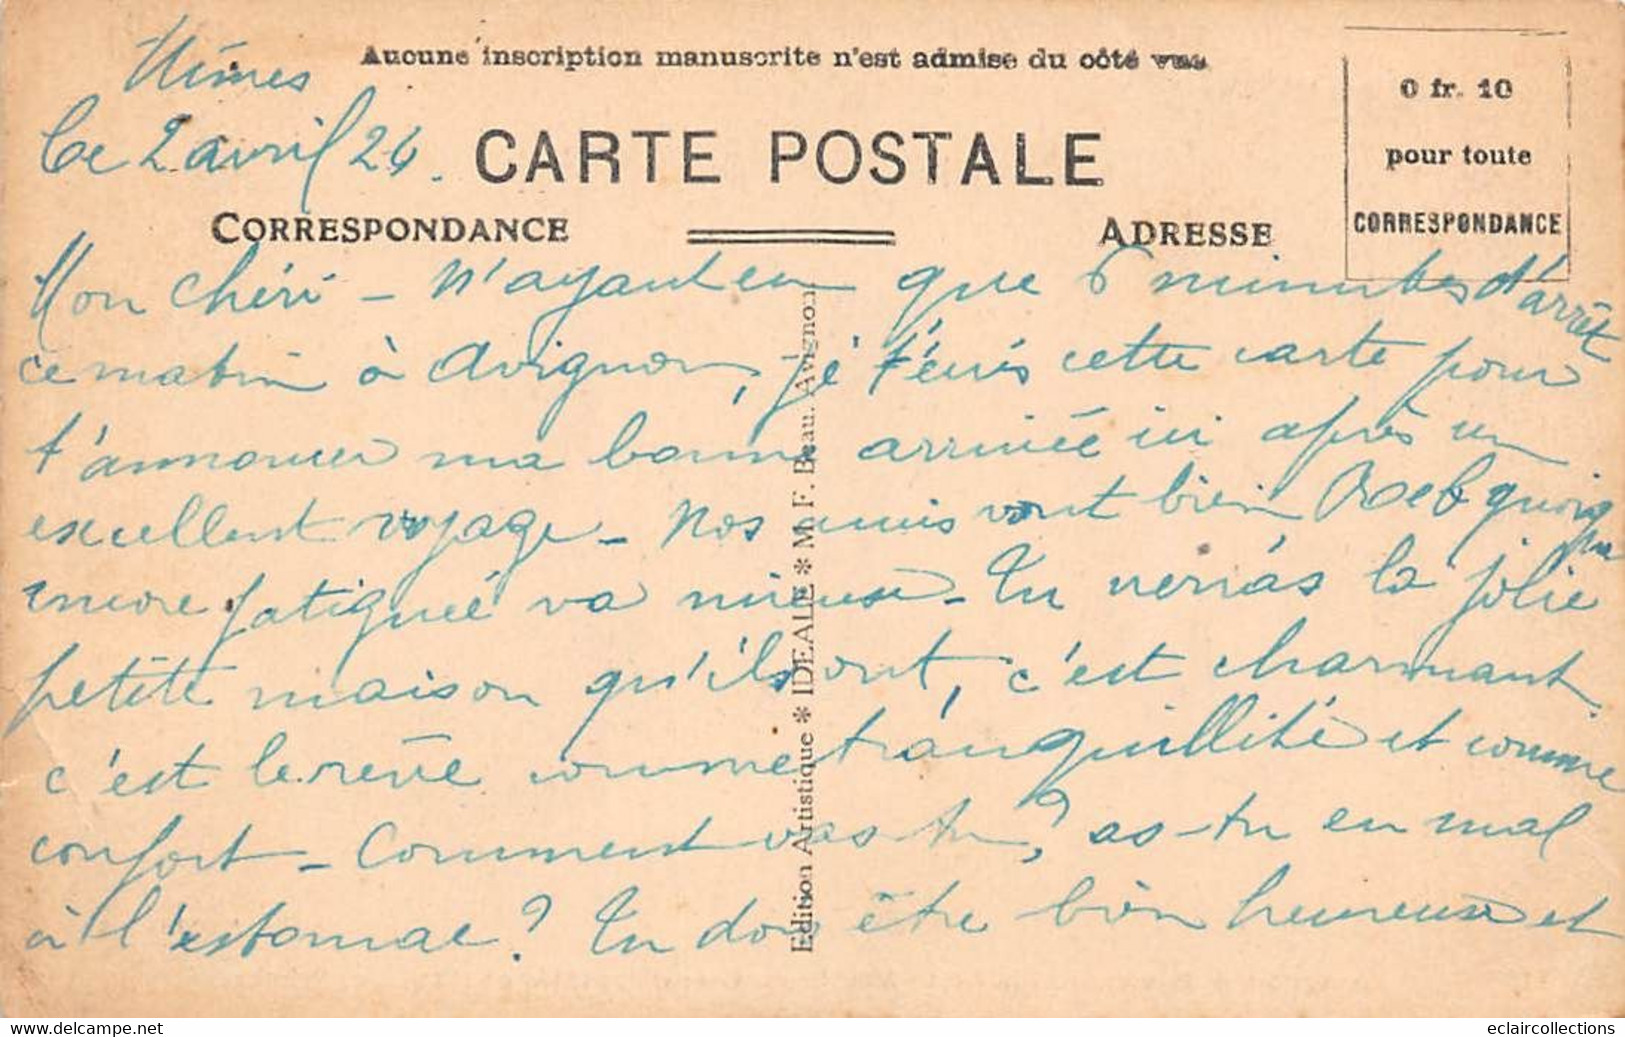 Nîmes
Aucune inscription manuscrite n'est admise du côté vue
Ce 2 avril 26.
CARTE POSTALE
0 fr. 10
pour toute
CORRESPONDANCE
CORRESPONDANCE
ADRESSE
Mon chéri - N'ayant eu que 5 minutes d'arrêt
ce matin à Avignon, je t'écris cette carte pour
t'annoncer ma bonne arrivée ici après un
excellent voyage - Nos amis vont bien quoique
encore fatiguée va mieux - Tu verras la jolie
petite maison qu'ils ont, c'est charmant
c'est le rêve comme tranquillité et comme
confort - Comment vas-tu? as-tu en mal
à l'estomac? Tu dois être bien heureuse et
Edition Artistique * IDEALE * M. F. Beau. Avignon
eclaircollections